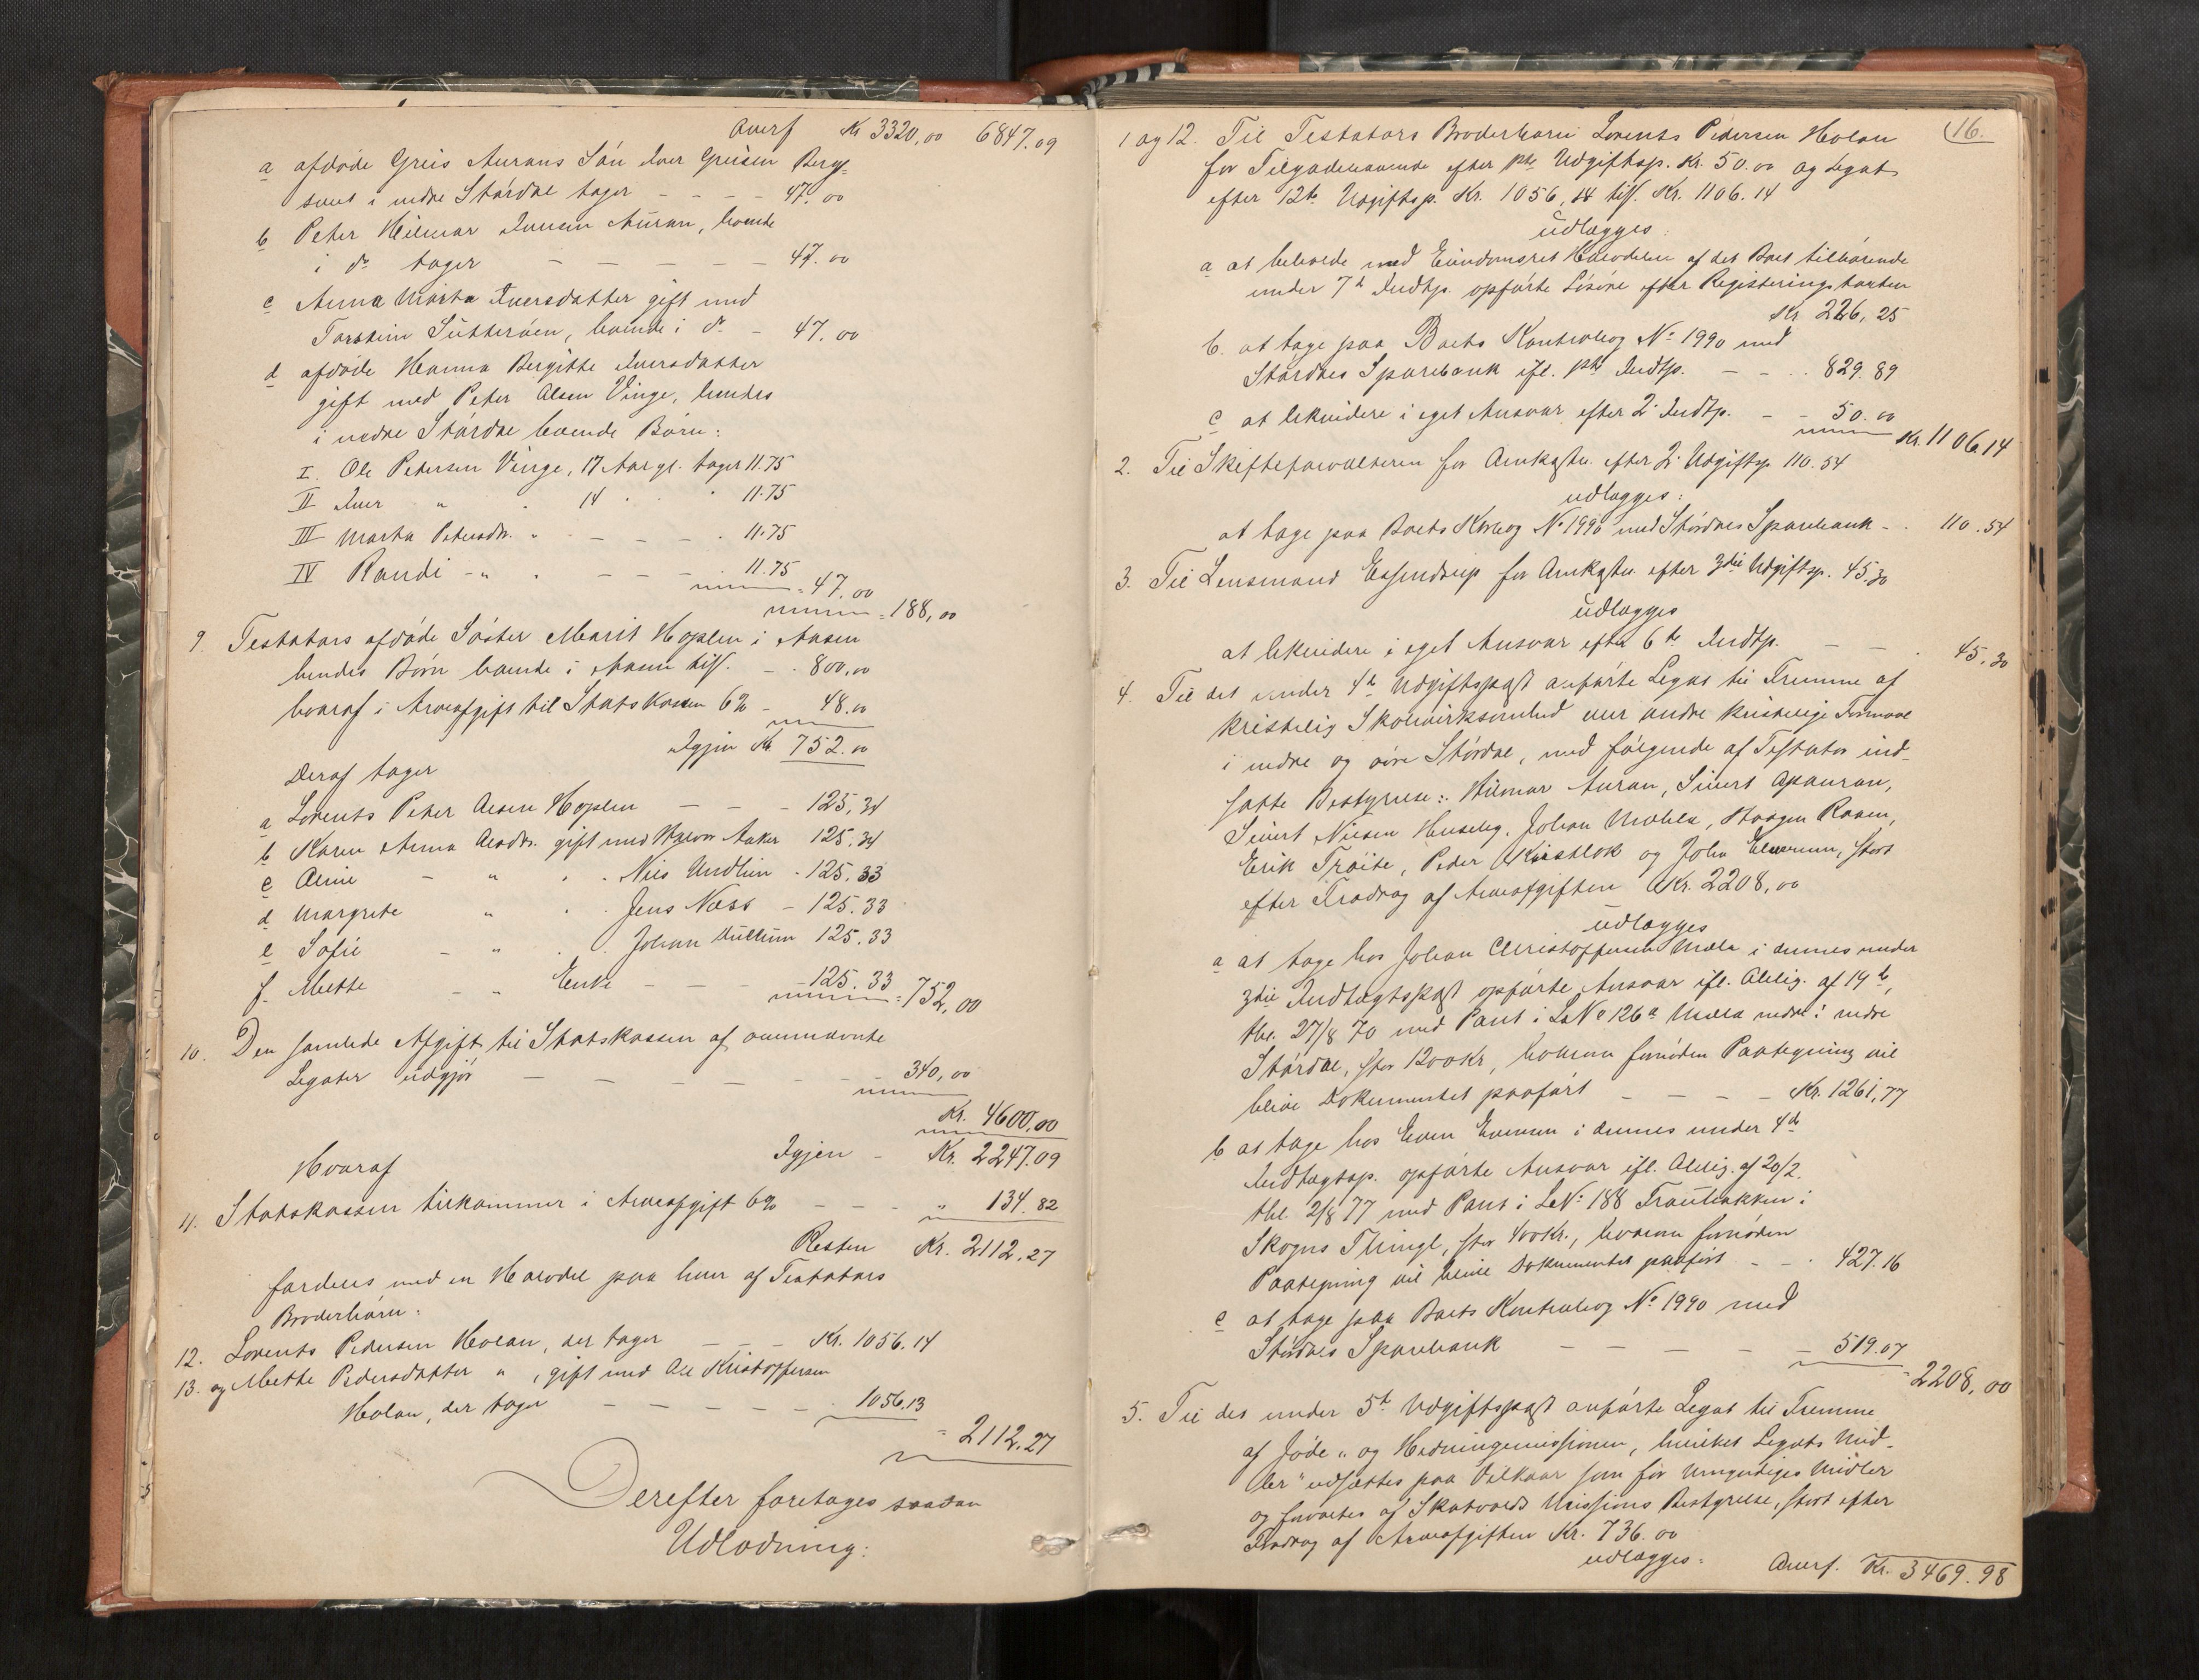 Overf Kr 3320,00 6847.09
a afdøde Greis Aurans Søn Iver Greisen Berg-
sveet i nedre Stördal tager — — — 47.00
b Peter Hilmar Iversen Auran, boende
i do tager — — — — — 47.00
c Anna Marta Iversdatter gift med
Torstein Sütterøen, boende i do — 47.00
d afdøde Hanna Bergitte Iversdatter
gift med Peter Olsen Vinge, hendes
i nedre Stördal boende Börn:
I. Ole Petersen Vinge, 17 Aar gl. tager 11.75
II Iver " . 14 . . . 11.75
III Marta Petersdtr. " — — — . 11.75
IV Randi - " . — — — 11.75
= 47.00
= 188,00
9. Testators afdøde Söster Marit Hoplen i Aasen
hendes Börn boende i Aasen tils. — . 800,00
hvoraf i Arveafgift til Statskassen 6% — 48.00
Igjen Kr 752.00
Deraf tager
a Lorents Peter Olsen Hoplen — — — 125,34
b Karen Anna Olsdtr. gift med Halvor Aaker 125.34
c Oline — " . . Nils Undlien . 125.33
d Margrete " . . Jens Næss — 125.33
e Sofie — " . . Johan Dullum 125.33
f. Mette — " Enke — — — 125.33
= 752,00
10. Den samlede Afgift til Statskassen af ovennævnte
Legater udgjør — — — — — — 340,00
Kr. 4600,00
Igjen — Kr. 2247.09
Hvoraf
11. Statskassen tilkommer i Arveafgift 6% — — — " 134.82
Resten Kr. 2112.27
fordeles med en Halvdel paa hver af Testators
Broderbörn:
12. Lorents Pedersen Holan, der tager — — Kr. 1056.14
13. og Mette Pedersdatter " , gift med Ole Kristoffersen
Holan, der tager — — — — — . 1056.13
= 2112.27
Derefter foretages saadan
Udlodning:
16.
1 og 12. Til Testators Broderbarn Lorents Pedersen Holan
for Tilgodehavende efter 1ste Udgiftsp. Kr. 50.00 og Legat
efter 12te Udgiftsp. Kr. 1056,14 tils. Kr. 1106.14
udlægges:
a at beholde med Eiendomsret Halvdelen af det Boet tilhørende
under 7de Indtp. opførte Lösöre efter Registreringstaxten
Kr. 226,25
b. at tage paa Boets Kontrabog No 1990 med
Stördals Sparebank ifl. 1ste Indtp. — — . . 829.89
c at likvidere i eget Ansvar efter 2. Indtp. — — 50.00
Kr. 1106.14
2. Til Skifteforvalteren for Omkostn. efter 2. Udgiftsp 110.54
udlægges:
at tage paa Boets Kontrabog No 1990 med Stördals Sparebank — . 110.54
3. Til Lensmand Essendrup for Omkostn. efter 3die Udgiftsp. 45.30
udlægges
at likvidere i eget Ansvar efter 6te Indtp. — — . 45.30
4. Til det under 4de Udgiftspost anförte Legat til Fremme af
kristelig Skolevirksomhed eller andre kristelige Formaal
i nedre og övre Stördal, med fölgende af Testator ind-
satte Bestyrelse: Hilmar Auran, Sivert Opauran,
Sivert Nilsen Husebÿ, Johan Mæhla, Haagen Raaen,
Erik Fraite, Peder Kirstlok og John Elverum, stort
efter Fradrag af Arveafgiften Kr. 2208,00
udlægges
a at tage hos Johan Christoffersen Mæla i dennes under
3die Indtægtspost opførte Ansvar ifl. Oblig. af 19de,
thl. 27/8 70 med Pant i LNo 126a Mæla nedre i nedre
Stördal, stor 1200 Kr, hvorom fornöden Paategning vil
blive Dokumentet paaført — — — — Kr. 1261,77
b at tage hos Even Evensen i dennes under 4de
Indtægtsp. opförte Ansvar ifl. Oblig. af 20/2.
thl. 2/8 77 med Pant i LNo 188 Trøitbakken i
Skogns Thingl, stor 400 Kr., hvorom fornöden
Paategning vil blive Dokumentet paaført — — . 427.16
c at tage paa Boets Kontrabog No 1990 med
Stördals Sparebank — — — — — 519.07
= 2208,00
5. Til det under 5te Udgiftspost anförte Legat til Fremme
af Jöde- og Hedningemissionen, hvilket Legats Mid-
ler "udsættes paa Vilkaar som for Umyndiges Midler
og forvaltes af Skatvolds Missions Bestyrelse, stort efter
Fradrag af Arveafgiften Kr. 736.00
udlægges:
Overf. Kr. 3469.98